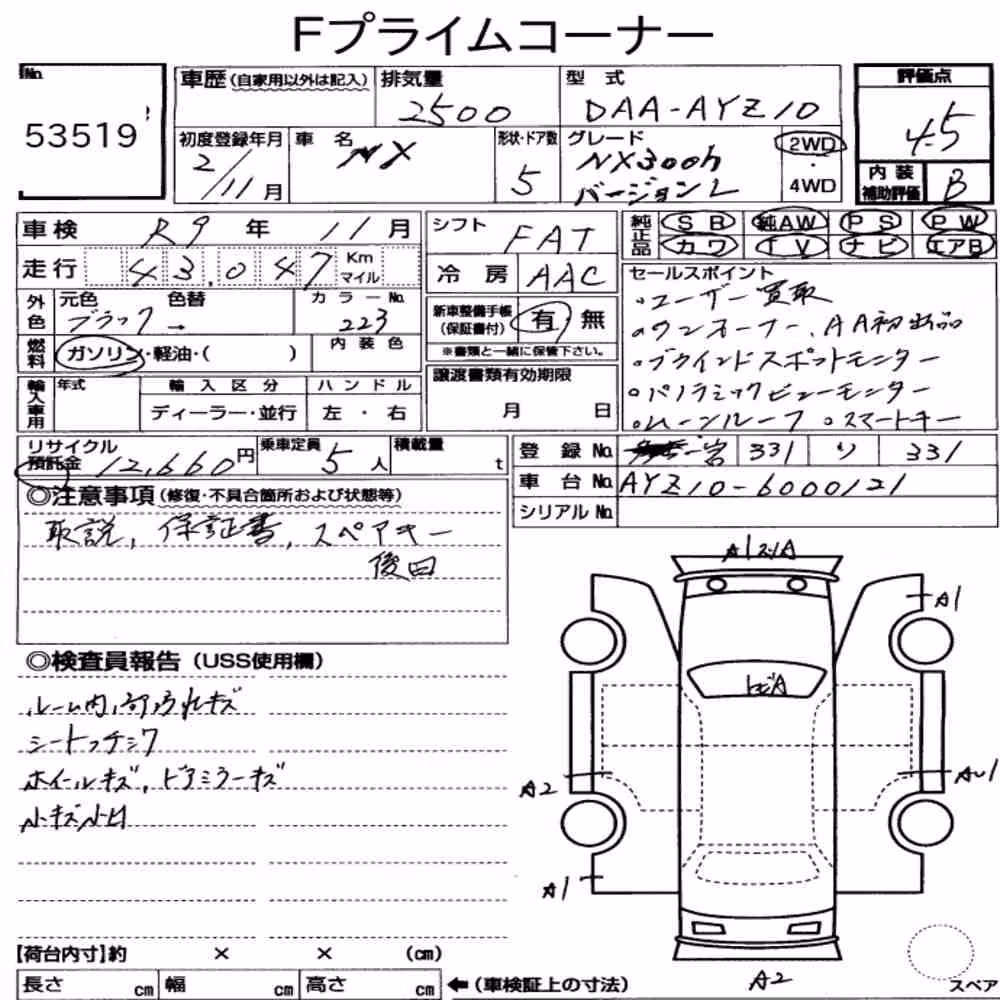 Fプライムコーナー
No.
53519
車歴 (自家用以外は記入)
排気量
2500
型 式
DAA-AYZ10
評価点
4.5
初度登録年月
2/11月
車 名
NX
形状・ドア数
5
グレード
NX300h
バージョンL
2WD
・
4WD
内装
補助評価
B
車検 R9 年 11 月
走行 43,047 Km
マイル
シフト
FAT
冷房 AAC
純正品
SR 純AW PS PW
カワ TV ナビ エアB
外色
元色 色替
ブラック →
カラーNo.
223
燃料
ガソリン・軽油・( )
内装色
新車整備手帳
(保証書付)
有 無
※書類と一緒に保管下さい。
セールスポイント
・ユーザー買取
・ワンオーナー、AA初出品
・ブラインドスポットモニター
・パノラミックビューモニター
・ムーンルーフ ・スマートキー
輸入車用
年式
輸入区分
ディーラー・並行
ハンドル
左・右
譲渡書類有効期限
月 日
リサイクル
預託金 12,660円
乗車定員
5人
積載量
t
登録No. 岩 331 り 331
車台No. AYZ10-6000121
シリアルNo.
◎注意事項 (修復・不具合箇所および状態等)
取説、保証書、スペアキー
後日
◎検査員報告 (USS使用欄)
ルーム内、
シート
ホイールキズ、ドアミラーキズ
小キズ小凹
A1
トビA
A1
A2
A1
A2
【荷台内寸】約 × × (cm)
長さ cm 幅 cm 高さ cm ←(車検証上の寸法)
スペア